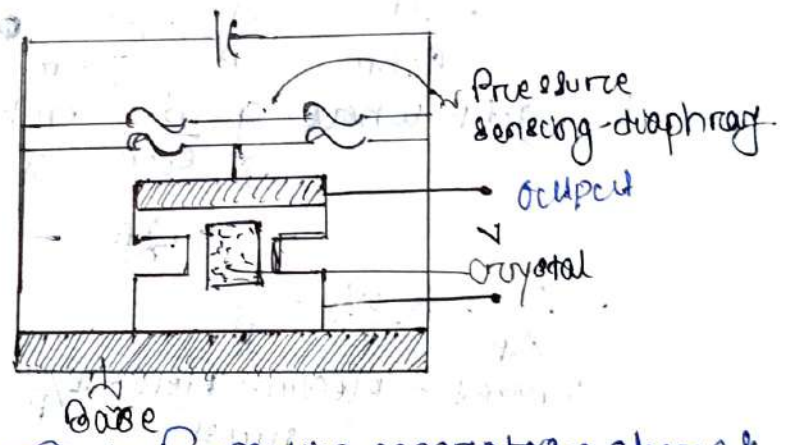 Pressure
sensing-diaphrag
output
V
Crystal
Base